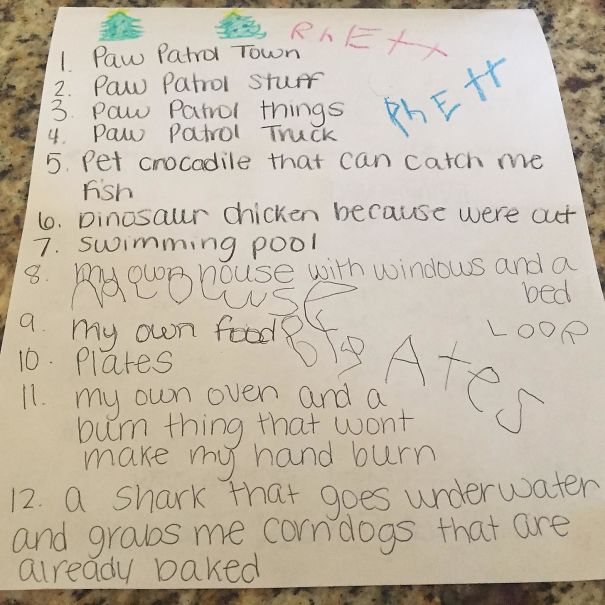 RhEtt
1. Paw Patrol Town
RhEtt
2. Paw Patrol Stuff
3. Paw Patrol things
4. Paw Patrol Truck
5. Pet crocadile that can catch me
fish
6. Dinosaur chicken because were out
7. Swimming pool
8. my own house with windows and a
bed
9. my own food
LOOP
10. Plates
PlAtes
11. my own oven and a
burn thing that wont
make my hand burn
12. a shark that goes underwater
and grabs me corndogs that are
already baked